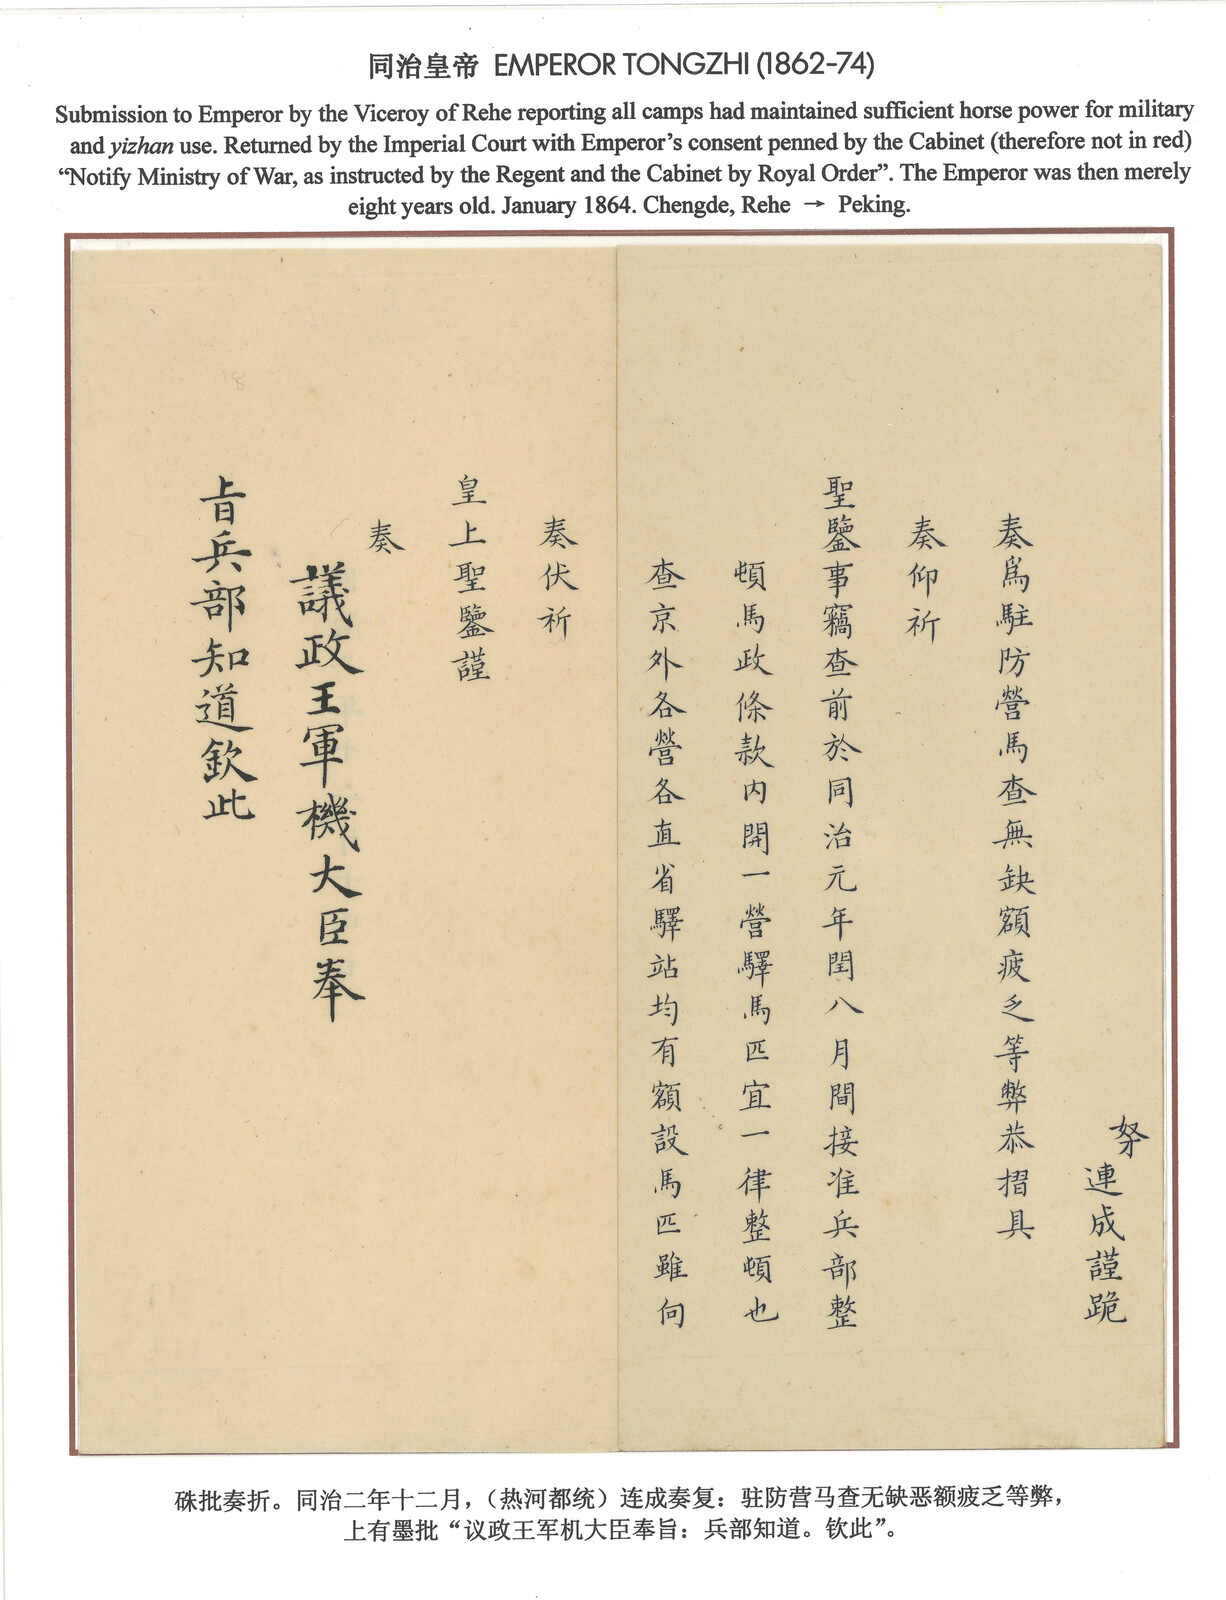 同治皇帝 EMPEROR TONGZHI (1862-74)
Submission to Emperor by the Viceroy of Rehe reporting all camps had maintained sufficient horse power for military
and yizhan use. Returned by the Imperial Court with Emperor's consent penned by the Cabinet (therefore not in red)
“Notify Ministry of War, as instructed by the Regent and the Cabinet by Royal Order”. The Emperor was then merely
eight years old. January 1864. Chengde, Rehe → Peking.
奴才
連成謹跪
奏爲駐防營馬查無缺額疲乏等弊恭摺具
奏仰祈
聖鑒事竊查前於同治元年閏八月間接准兵部整
頓馬政條款内開一營驛馬匹宜一律整頓也
查京外各營各直省驛站均有額設馬匹雖向
奏伏祈
皇上聖鑒謹
奏
議政王軍機大臣奉
旨兵部知道欽此
硃批奏折。同治二年十二月，（热河都统）连成奏复：驻防营马查无缺恶额疲乏等弊，
上有墨批“议政王军机大臣奉旨：兵部知道。钦此”。